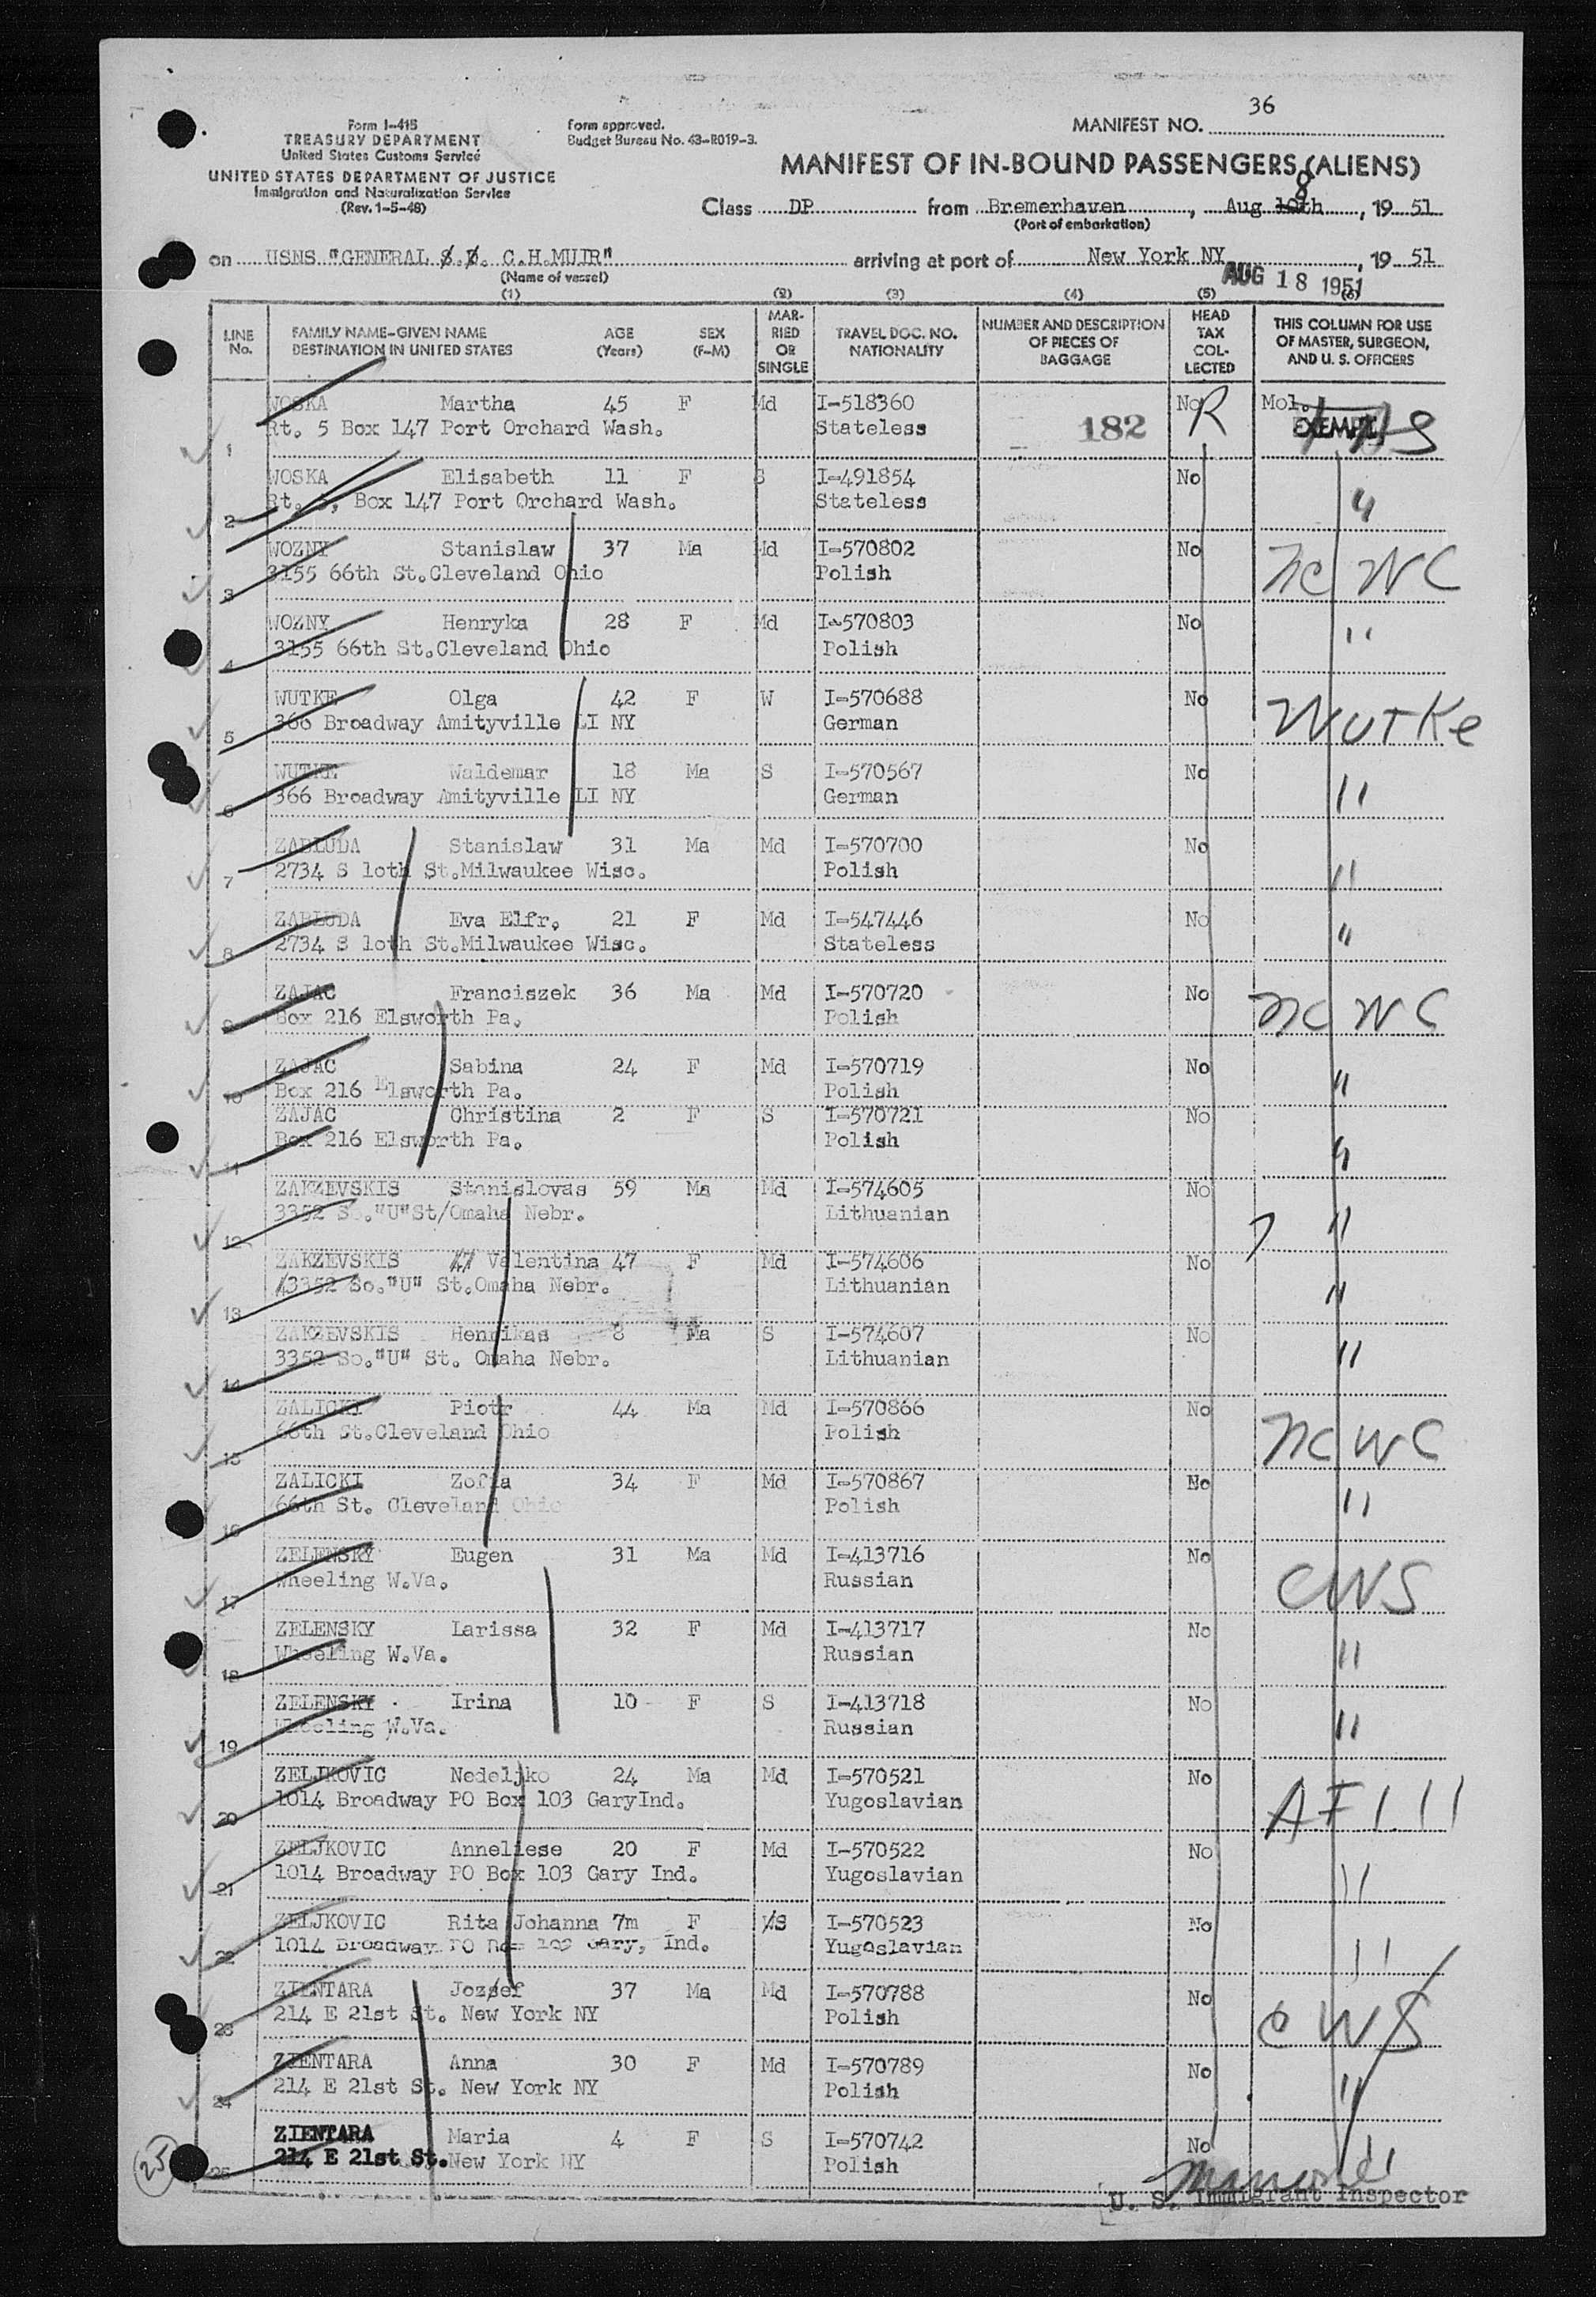 36
Form I-415
TREASURY DEPARTMENT
United States Customs Service
UNITED STATES DEPARTMENT OF JUSTICE
Immigration and Naturalization Service
(Rev. 1-5-48)
form approved.
Budget Bureau No. 43-R019-3.
MANIFEST NO.
MANIFEST OF IN-BOUND PASSENGERS (ALIENS)
Class DP from Bremerhaven, Aug 10th 8, 19 51
(Port of embarkation)
on USNS "GENERAL C.H.MUIR" arriving at port of New York NY, 19 51
(Name of vessel)
AUG 18 1951
(1) (2) (3) (4) (5) (6)
LINE No. FAMILY NAME-GIVEN NAME DESTINATION IN UNITED STATES AGE (Years) SEX (F-M) MARRIED OR SINGLE TRAVEL DOC. NO. NATIONALITY NUMBER AND DESCRIPTION OF PIECES OF BAGGAGE HEAD TAX COLLECTED THIS COLUMN FOR USE OF MASTER, SURGEON, AND U. S. OFFICERS
WOSKA Martha 45 F Md I-518360 No R Mol.
1 Rt. 5 Box 147 Port Orchard Wash. Stateless 182 EXEMPT
WOSKA Elisabeth 11 F S I-491854 No
2 Rt. 5, Box 147 Port Orchard Wash. Stateless "
WOZNY Stanislaw 37 Ma Md I-570802 No
3 3155 66th St.Cleveland Ohio Polish NCWC
WOZNY Henryka 28 F Md I-570803 No
4 3155 66th St.Cleveland Ohio Polish "
WUTKE Olga 42 F W I-570688 No
5 366 Broadway Amityville LI NY German Wutke
WUTKE Waldemar 18 Ma S I-570567 No
6 366 Broadway Amityville LI NY German "
ZABLUDA Stanislaw 31 Ma Md I-570700 No
7 2734 S 10th St.Milwaukee Wisc. Polish "
ZABLUDA Eva Elfr. 21 F Md I-547446 No
8 2734 S 10th St.Milwaukee Wisc. Stateless "
ZAJAC Franciszek 36 Ma Md I-570720 No
9 Box 216 Elsworth Pa. Polish NCWC
ZAJAC Sabina 24 F Md I-570719 No
10 Box 216 Elsworth Pa. Polish "
ZAJAC Christina 2 F S I-570721 No
11 Box 216 Elsworth Pa. Polish "
ZAKZEVSKIS Stanislovas 59 Ma Md I-574605 No
12 3352 So."U"St/Omaha Nebr. Lithuanian "
ZAKZEVSKIS Valentina 47 F Md I-574606 No
13 3352 So."U" St.Omaha Nebr. Lithuanian "
ZAKZEVSKIS Henrikas 8 Ma S I-574607 No
14 3352 So."U" St. Omaha Nebr. Lithuanian "
ZALICKI Piotr 44 Ma Md I-570866 No
15 66th St.Cleveland Ohio Polish NCWC
ZALICKI Zofia 34 F Md I-570867 No
16 66th St. Cleveland Ohio Polish "
ZELENSKY Eugen 31 Ma Md I-413716 No
17 Wheeling W.Va. Russian CWS
ZELENSKY Larissa 32 F Md I-413717 No
18 Wheeling W.Va. Russian "
ZELENSKY Irina 10 F S I-413718 No
19 Wheeling W.Va. Russian "
ZELJKOVIC Nedeljko 24 Ma Md I-570521 No
20 1014 Broadway PO Box 103 GaryInd. Yugoslavian
ZELJKOVIC Anneliese 20 F Md I-570522 No
21 1014 Broadway PO Box 103 Gary Ind. Yugoslavian "
ZELJKOVIC Rita Johanna 7m F S I-570523 No
22 1014 Broadway PO Box 103 Gary, Ind. Yugoslavian "
ZIENTARA Jozsef 37 Ma Md I-570788 No
23 214 E 21st St. New York NY Polish CWS
ZIENTARA Anna 30 F Md I-570789 No
24 214 E 21st St. New York NY Polish "
ZIENTARA Maria 4 F S I-570742 No
25 214 E 21st St. New York NY Polish "
25
U. S. Immigrant Inspector